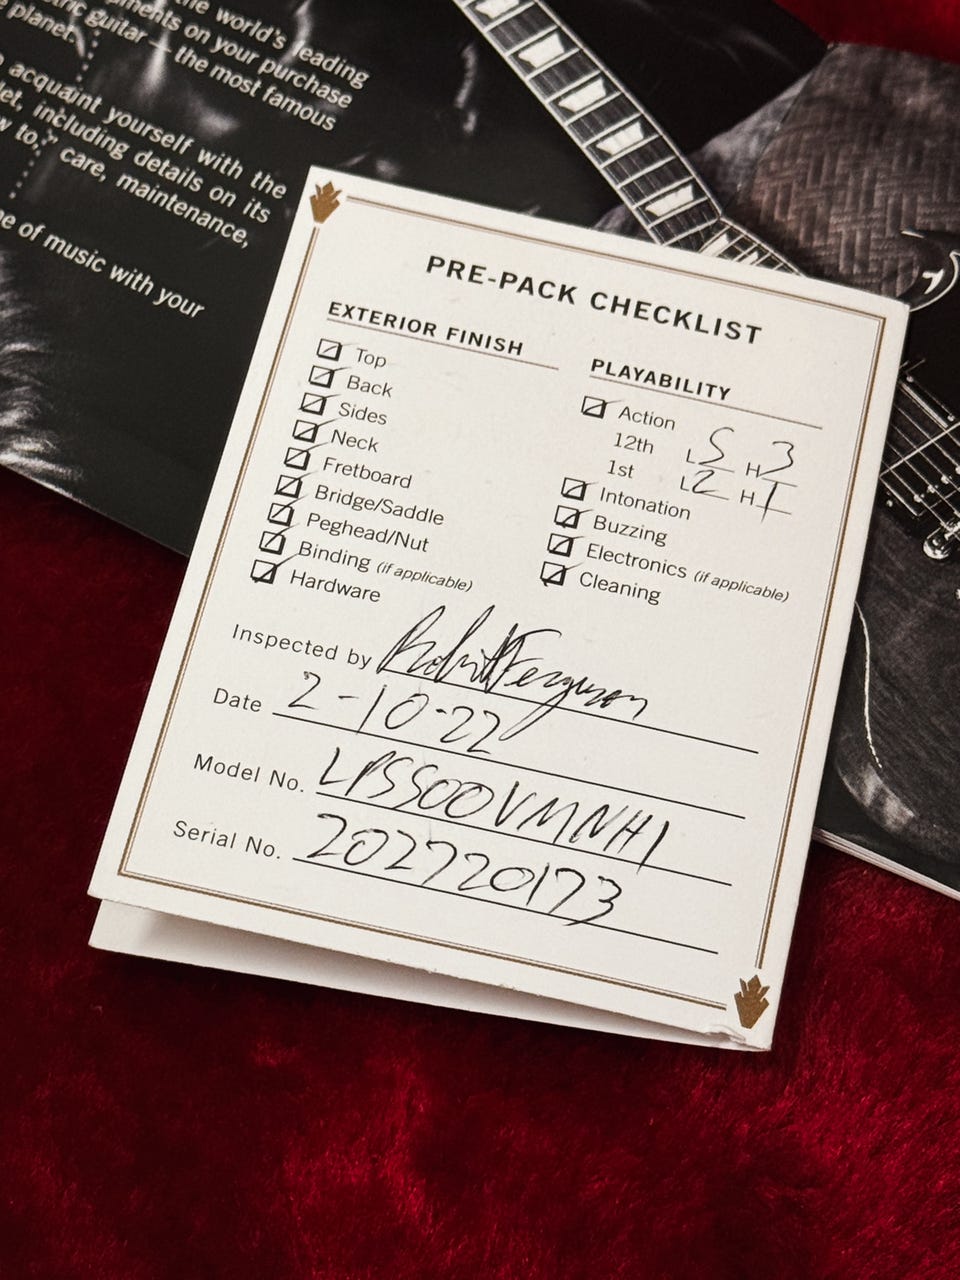 the world's leading
ments on your purchase
tric guitar — the most famous
planet.
acquaint yourself with the
let, including details on its
w to," care, maintenance,
e of music with your
PRE-PACK CHECKLIST
EXTERIOR FINISH
Top
Back
Sides
Neck
Fretboard
Bridge/Saddle
Peghead/Nut
Binding (if applicable)
Hardware
PLAYABILITY
Action
12th L 5 H 3
1st L 2 H 1
Intonation
Buzzing
Electronics (if applicable)
Cleaning
Inspected by Robert Ferguson
Date 2-10-22
Model No. LPS500VMNH1
Serial No. 202720173